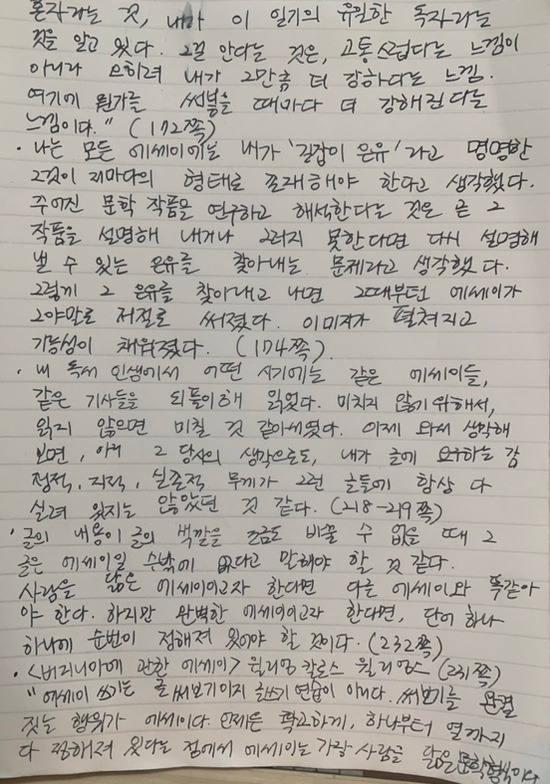 혼자라는 것, 내가 이 일기의 유일한 독자라는
것을 알고 있다. 그걸 안다는 것은, 고통스럽다는 느낌이
아니라 오히려 내가 그만큼 더 강하다는 느낌.
여기에 뭔가를 써넣을 때마다 더 강해진다는
느낌이다." (172쪽)
· 나는 모든 에세이에는 내가 '길잡이 은유'라고 명명한
그것이 저마다의 형태로 존재해야 한다고 생각했다.
주어진 문학 작품을 연구하고 해석한다는 것은 곧 그
작품을 설명해 내거나 그러지 못한다면 다시 설명해
낼 수 있는 은유를 찾아내는 문제라고 생각했다.
그렇게 그 은유를 찾아내고 나면 그때부턴 에세이가
그야말로 저절로 써졌다. 이미지가 펼쳐지고
가능성이 채워졌다. (174쪽)
· 내 독서 인생에서 어떤 시기에는 같은 에세이들,
같은 기사들을 되풀이해 읽었다. 미치지 않기 위해서,
읽지 않으면 미칠 것 같아서였다. 이제 와서 생각해
보면, 아마 그 당시의 생각으로도, 내가 글에 요구하는 감
정적, 지적, 실존적 무게가 그런 글들에 항상 다
실려 있지는 않았던 것 같다. (218-219쪽)
· 글의 내용이 글의 색깔을 조금도 바꿀 수 없을 때 그
글은 에세이일 수밖에 없다고 말해야 할 것 같다.
사람을 닮은 에세이이고자 한다면 다른 에세이와 똑같아
야 한다. 하지만 완벽한 에세이이고자 한다면, 단어 하나
하나에 순번이 정해져 있어야 할 것이다. (232쪽)
· <버지니아에 관한 에세이> 윌리엄 칼로스 윌리엄스 (231쪽)
"에세이 쓰기는 글 써보기이지 글쓰기 연습이 아니다. 써보기를 완결
짓는 행위가 에세이다. 언제든 확고하게, 하나부터 열까지
다 정해져 있다는 점에서 에세이는 가장 사람을 닮은 문학 형식이다